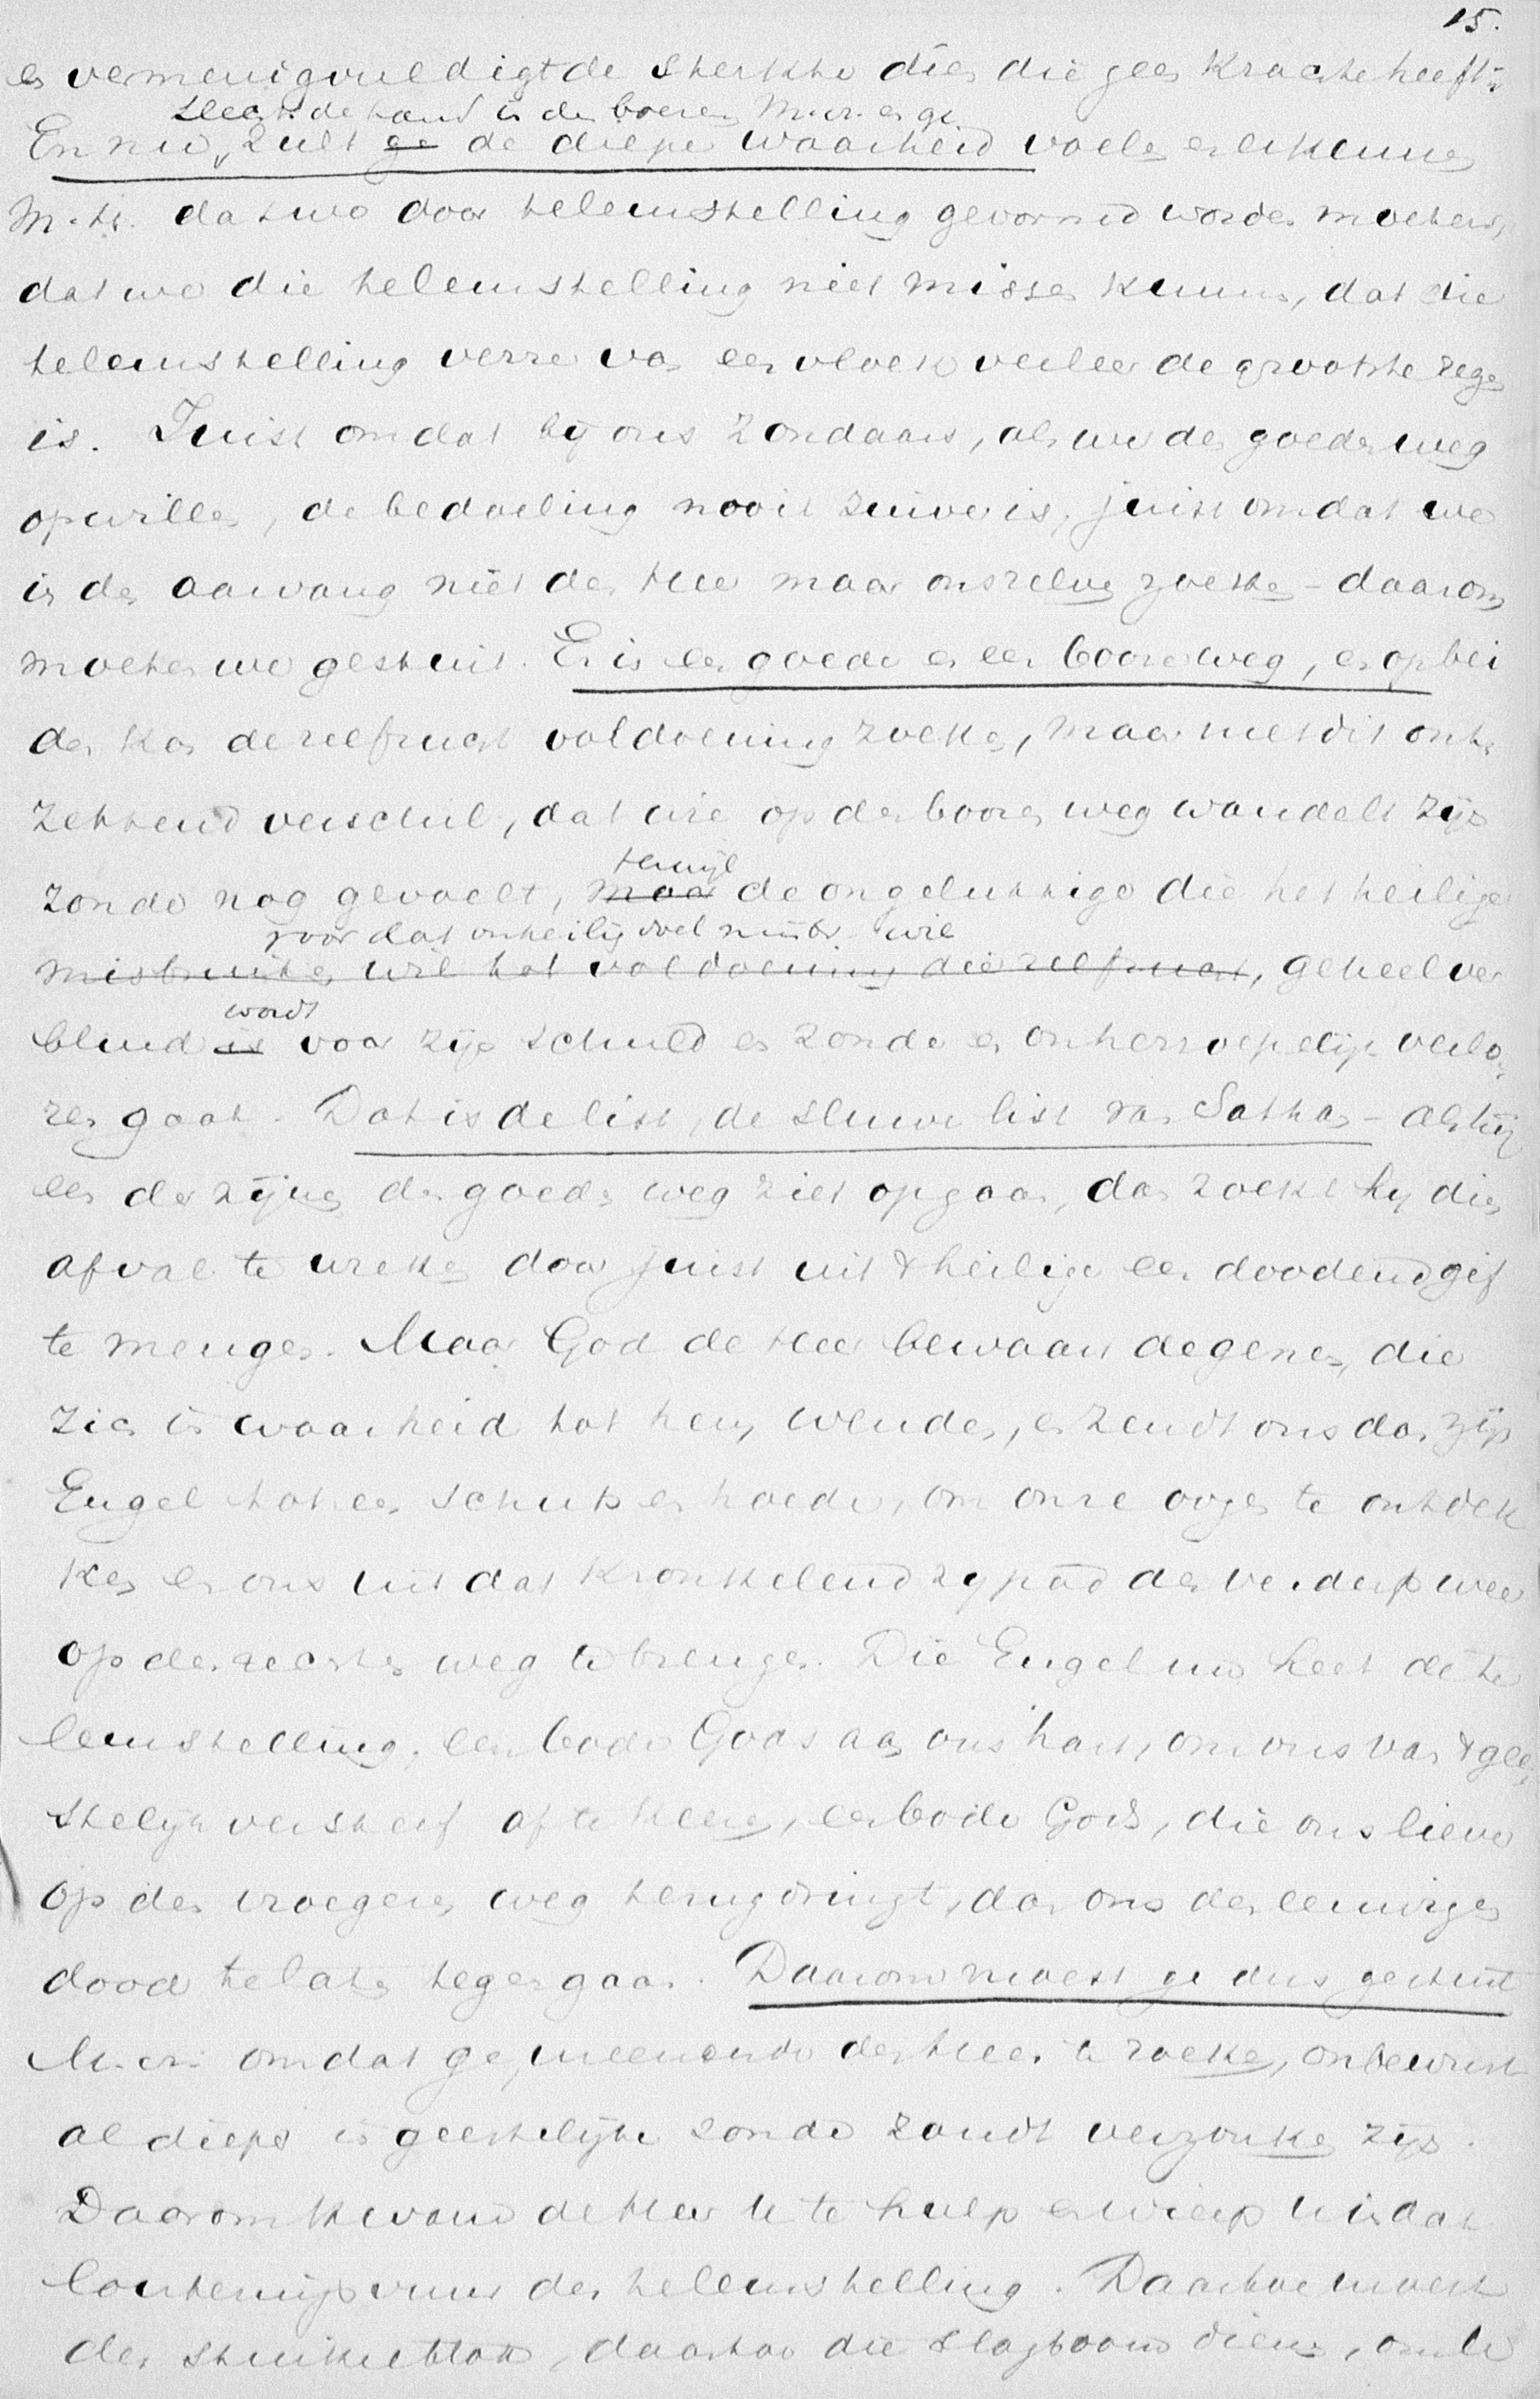 15.
en vermenigvuldigt de sterkte dien die geen krachte heeft."
Steekt de hand in den boezem M. vr. en ge
En nu, zult ge de diepe waarheid voelen en erkennen
M. h. dat we door teleurstelling gevormd worden moeten,
dat we die teleurstelling niet missen kunnen, dat die
teleurstelling verre van een vloek veeleer de grootste zegen
is. Juist omdat bij ons zondaars, als we den goeden weg
op willen, de bedoeling nooit zuiver is, juist omdat we
in den aanvang niet den Heer maar ons zelven zoeken - daarom
moeten we gestuit. Er is een goede en een booze weg, en op bei
den kan de zelfzucht voldoening zoeken, maar met dit ont-
zettend verschil, dat wie op den boozen weg wandelt zijn
terwijl
zonde nog gevoelt, maar de ongelukkige die het heilige
voor dat onheilig doel misbr. wil
misbruiken wil tot voldoening dier zelfzucht, geheel ver
wordt
blind is voor zijn schuld en zonde en onherroepelijk verlo-
ren gaat. Dat is de list, de sluwe list van Sathan - als hij
een der zijnen den goeden weg ziet opgaan, dan zoekt hij dien
afval te wreken door juist uit 't heilige een doodend gif
te mengen. Maar God de Heer bewaart degenen, die
zich in waarheid tot hem wenden, en zendt ons dan zijn
Engel tot een schuts en hoede, om onze oogen te ontdek
ken en ons uit dat kronkelend zijpad des verderfs weer
op den rechten weg te brengen. Die Engel nu heet de te
leurstelling, een bode Gods aan ons hart, om ons van 't gee-
stelijk versterf af te keeren, een bode Gods, die ons liever
op den vroegeren weg terugdringt, dan ons den eeuwigen
dood te laten tegengaan. Daarom moest ge dus gestuit
M. vr. omdat ge, meenende den Heer te zoeken, onbewust
al dieper in geestelijke zonde zoudt verzonken zijn.
Daarom kwam de Heer u te hulp en wierp u in dat
louteringsvuur der teleurstelling. Daartoe moest
den struikelblok, daartoe die slagboom dienen, om u